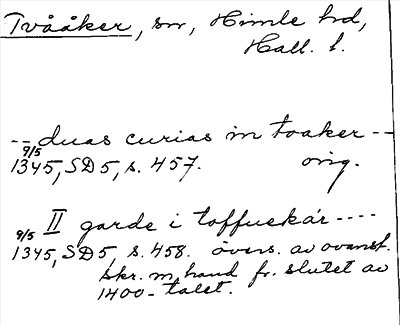 Tvååker, sn, Himle hd,
Hall. l.
-- duas curias in toaker --
9/5
1345, SD5, s. 457. orig.
9/5 II garde i toffuekár ----
1345, SD5, s. 458. övers. av ovanst.
skr. m. hand fr. slutet av
1400-talet.